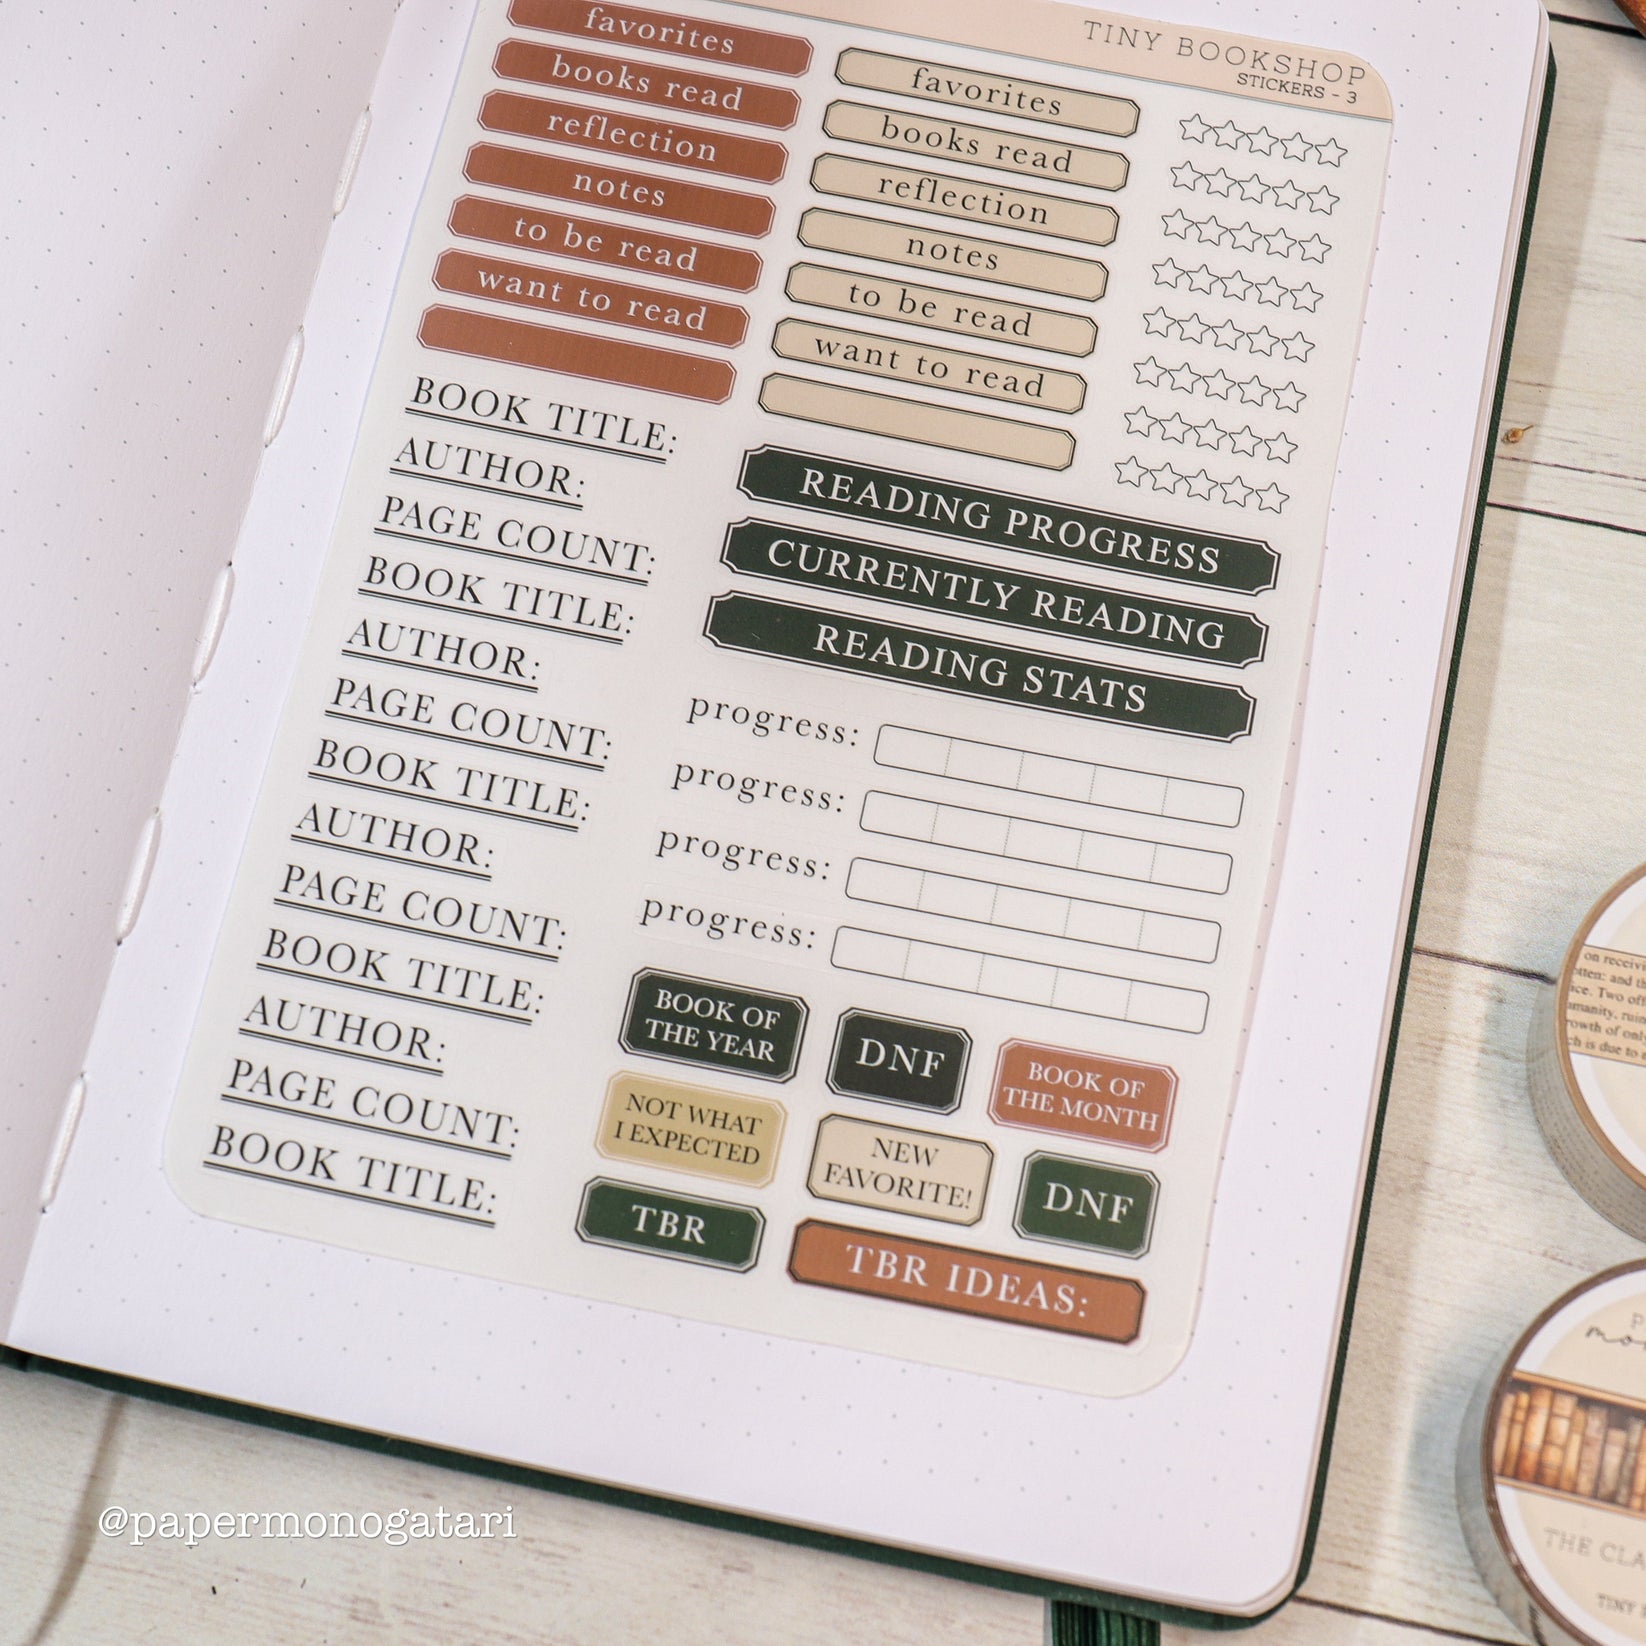 TINY BOOKSHOP
STICKERS - 3
favorites
books read
reflection
notes
to be read
want to read
favorites
books read
reflection
notes
to be read
want to read
BOOK TITLE:
AUTHOR:
PAGE COUNT:
BOOK TITLE:
AUTHOR:
PAGE COUNT:
BOOK TITLE:
AUTHOR:
PAGE COUNT:
BOOK TITLE:
AUTHOR:
PAGE COUNT:
BOOK TITLE:
READING PROGRESS
CURRENTLY READING
READING STATS
progress:
progress:
progress:
progress:
BOOK OF
THE YEAR
DNF
BOOK OF
THE MONTH
NOT WHAT
I EXPECTED
NEW
FAVORITE!
DNF
TBR
TBR IDEAS:
on
and
Two
is due to
THE
TINY
@papermonogatari